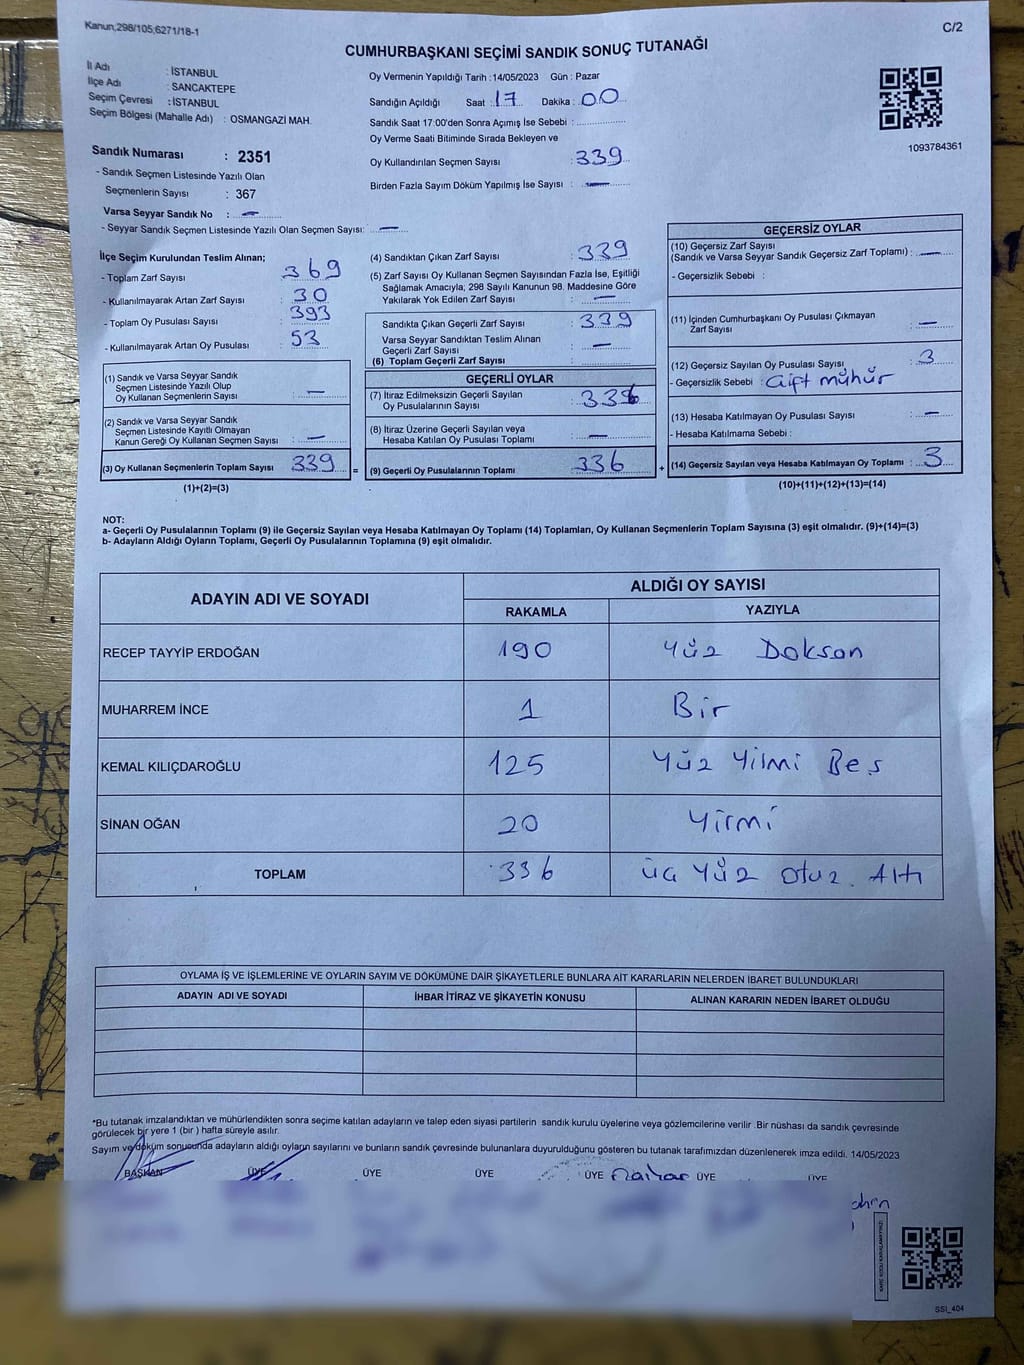 Kanun;298/105;6271/18-1
C/2
CUMHURBAŞKANI SEÇİMİ SANDIK SONUÇ TUTANAĞI
İl Adı : İSTANBUL
İlçe Adı : SANCAKTEPE
Seçim Çevresi : İSTANBUL
Seçim Bölgesi (Mahalle Adı) : OSMANGAZİ MAH.
Oy Vermenin Yapıldığı Tarih :14/05/2023 Gün : Pazar
Sandığın Açıldığı Saat : 17 Dakika : 00
Sandık Saat 17:00'den Sonra Açılmış İse Sebebi :
Oy Verme Saati Bitiminde Sırada Bekleyen ve
Oy Kullandırılan Seçmen Sayısı : 339
Birden Fazla Sayım Döküm Yapılmış İse Sayısı : —
1093784361
Sandık Numarası : 2351
- Sandık Seçmen Listesinde Yazılı Olan
Seçmenlerin Sayısı : 367
Varsa Seyyar Sandık No : —
- Seyyar Sandık Seçmen Listesinde Yazılı Olan Seçmen Sayısı: —
İlçe Seçim Kurulundan Teslim Alınan;
- Toplam Zarf Sayısı : 369
- Kullanılmayarak Artan Zarf Sayısı : 30
- Toplam Oy Pusulası Sayısı : 393
- Kullanılmayarak Artan Oy Pusulası : 53
(1) Sandık ve Varsa Seyyar Sandık
Seçmen Listesinde Yazılı Olup
Oy Kullanan Seçmenlerin Sayısı : —
(2) Sandık ve Varsa Seyyar Sandık
Seçmen Listesinde Kayıtlı Olmayan
Kanun Gereği Oy Kullanan Seçmen Sayısı : —
(3) Oy Kullanan Seçmenlerin Toplam Sayısı : 339
(1)+(2)=(3)
(4) Sandıktan Çıkan Zarf Sayısı : 339
(5) Zarf Sayısı Oy Kullanan Seçmen Sayısından Fazla İse, Eşitliği
Sağlamak Amacıyla; 298 Sayılı Kanunun 98. Maddesine Göre
Yakılarak Yok Edilen Zarf Sayısı : —
Sandıkta Çıkan Geçerli Zarf Sayısı : 339
Varsa Seyyar Sandıktan Teslim Alınan
Geçerli Zarf Sayısı : —
(6) Toplam Geçerli Zarf Sayısı :
GEÇERLİ OYLAR
(7) İtiraz Edilmeksizin Geçerli Sayılan
Oy Pusulalarının Sayısı : 336
(8) İtiraz Üzerine Geçerli Sayılan veya
Hesaba Katılan Oy Pusulası Toplamı : —
= (9) Geçerli Oy Pusulalarının Toplamı : 336 +
GEÇERSİZ OYLAR
(10) Geçersiz Zarf Sayısı
(Sandık ve Varsa Seyyar Sandık Geçersiz Zarf Toplamı) : —
- Geçersizlik Sebebi :
(11) İçinden Cumhurbaşkanı Oy Pusulası Çıkmayan
Zarf Sayısı : —
(12) Geçersiz Sayılan Oy Pusulası Sayısı : 3
- Geçersizlik Sebebi : Çift mühür
(13) Hesaba Katılmayan Oy Pusulası Sayısı : —
- Hesaba Katılmama Sebebi :
(14) Geçersiz Sayılan veya Hesaba Katılmayan Oy Toplamı : 3
(10)+(11)+(12)+(13)=(14)
NOT:
a- Geçerli Oy Pusulalarının Toplamı (9) ile Geçersiz Sayılan veya Hesaba Katılmayan Oy Toplamı (14) Toplamları, Oy Kullanan Seçmenlerin Toplam Sayısına (3) eşit olmalıdır. (9)+(14)=(3)
b- Adayların Aldığı Oyların Toplamı, Geçerli Oy Pusulalarının Toplamına (9) eşit olmalıdır.
ADAYIN ADI VE SOYADI ALDIĞI OY SAYISI
RAKAMLA YAZIYLA
RECEP TAYYİP ERDOĞAN 190 Yüz Doksan
MUHARREM İNCE 1 Bir
KEMAL KILIÇDAROĞLU 125 Yüz Yilmi Beş
SİNAN OĞAN 20 Yirmi
TOPLAM 336 Üç Yüz Otuz Altı
OYLAMA İŞ VE İŞLEMLERİNE VE OYLARIN SAYIM VE DÖKÜMÜNE DAİR ŞİKAYETLERLE BUNLARA AİT KARARLARIN NELERDEN İBARET BULUNDUKLARI
ADAYIN ADI VE SOYADI İHBAR İTİRAZ VE ŞİKAYETİN KONUSU ALINAN KARARIN NEDEN İBARET OLDUĞU
*Bu tutanak imzalandıktan ve mühürlendikten sonra seçime katılan adayların ve talep eden siyasi partilerin sandık kurulu üyelerine veya gözlemcilerine verilir .Bir nüshası da sandık çevresinde
görülecek bir yere 1 (bir ) hafta süreyle asılır.
Sayım ve döküm sonucunda adayların aldığı oyların sayılarını ve bunların sandık çevresinde bulunanlara duyurulduğunu gösteren bu tutanak tarafımızdan düzenlenerek imza edildi. 14/05/2023
BAŞKAN ÜYE ÜYE ÜYE ÜYE ÜYE ÜYE
SSİ_404